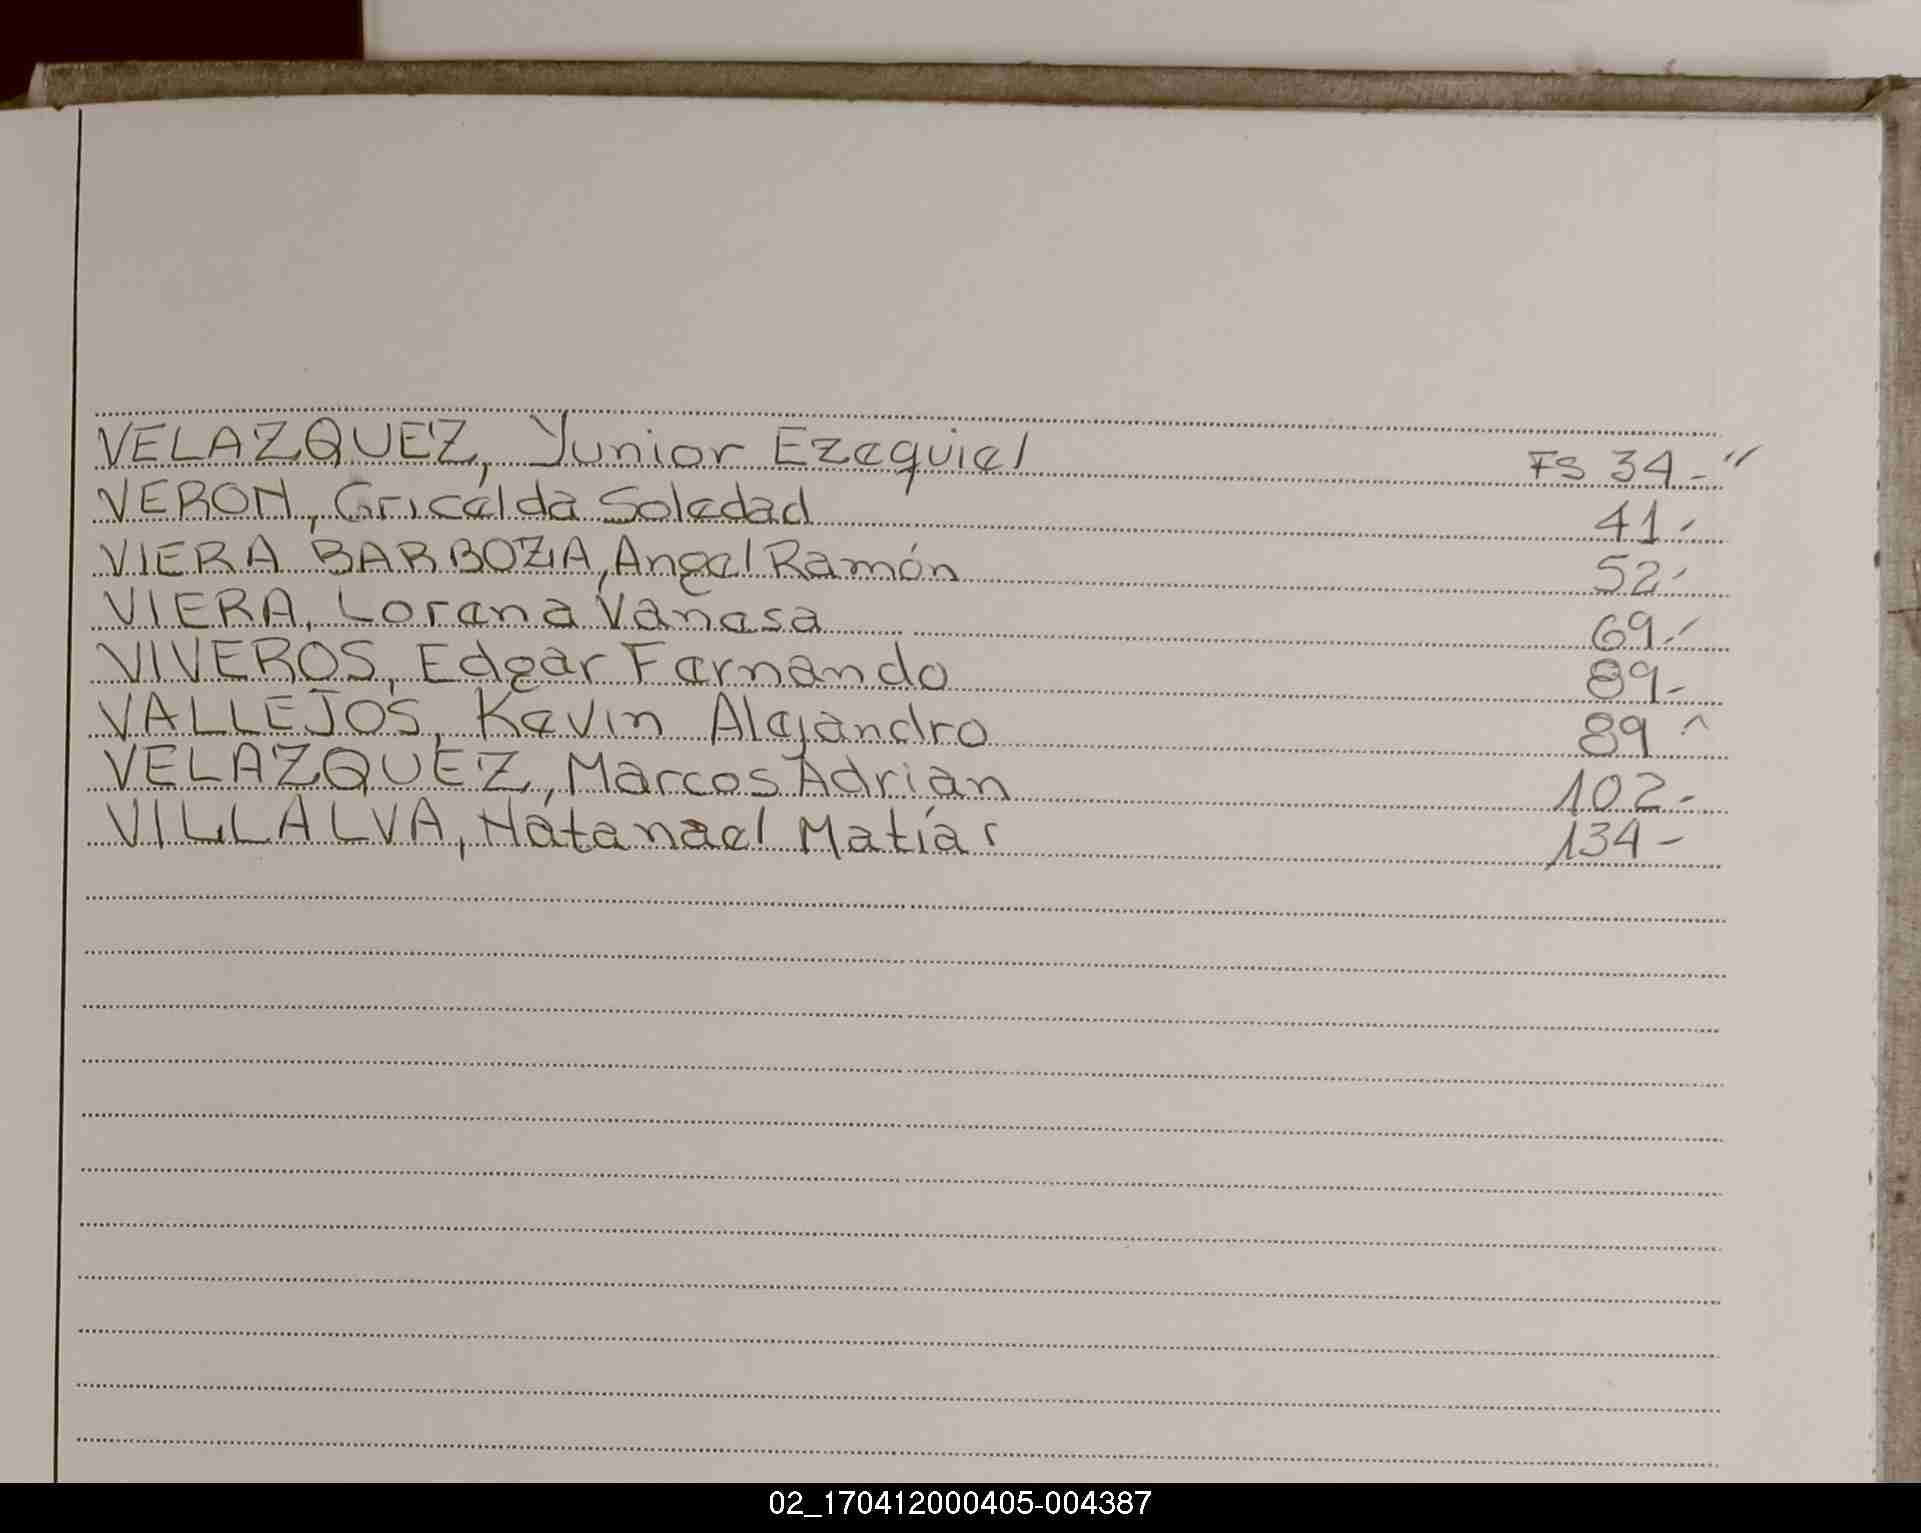 VELAZQUEZ, Yunior Ezequiel FS 34-"
VERON, Gricelda Soledad 41-
VIERA BARBOZA, Angel Ramón 52-
VIERA, Lorena Vanesa 69-
VIVEROS, Edgar Fernando 89-
VALLEJOS, Kevin Alejandro 89-
VELAZQUEZ, Marcos Adrian 102-
VILLALVA, Natanael Matías 134-
02_170412000405-004387